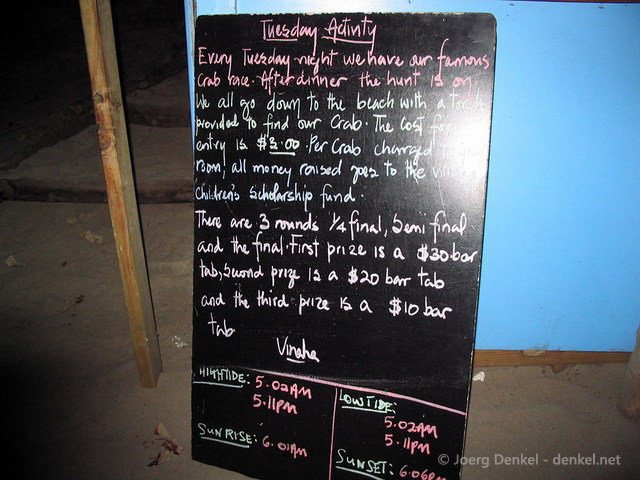 Tuesday Activity
Every Tuesday night we have our famous
Crab race. After dinner the hunt is on.
We all go down to the beach with a torch
provided to find our Crab. The cost for
entry is $3.00 Per Crab charged
room, all money raised goes to the
Children's Scholarship fund.
There are 3 rounds 1/4 final, Semi final
and the final. First prize is a $30 bar
tab, Second prize is a $20 bar tab
and the third prize is a $10 bar
tab.
Vinaha
HIGHTIDE: 5.02AM
5.11PM
SUNRISE: 6.01AM
LOWTIDE:
5.02AM
5.11PM
SUNSET: 6.06PM
© Joerg Denkel - denkel.net